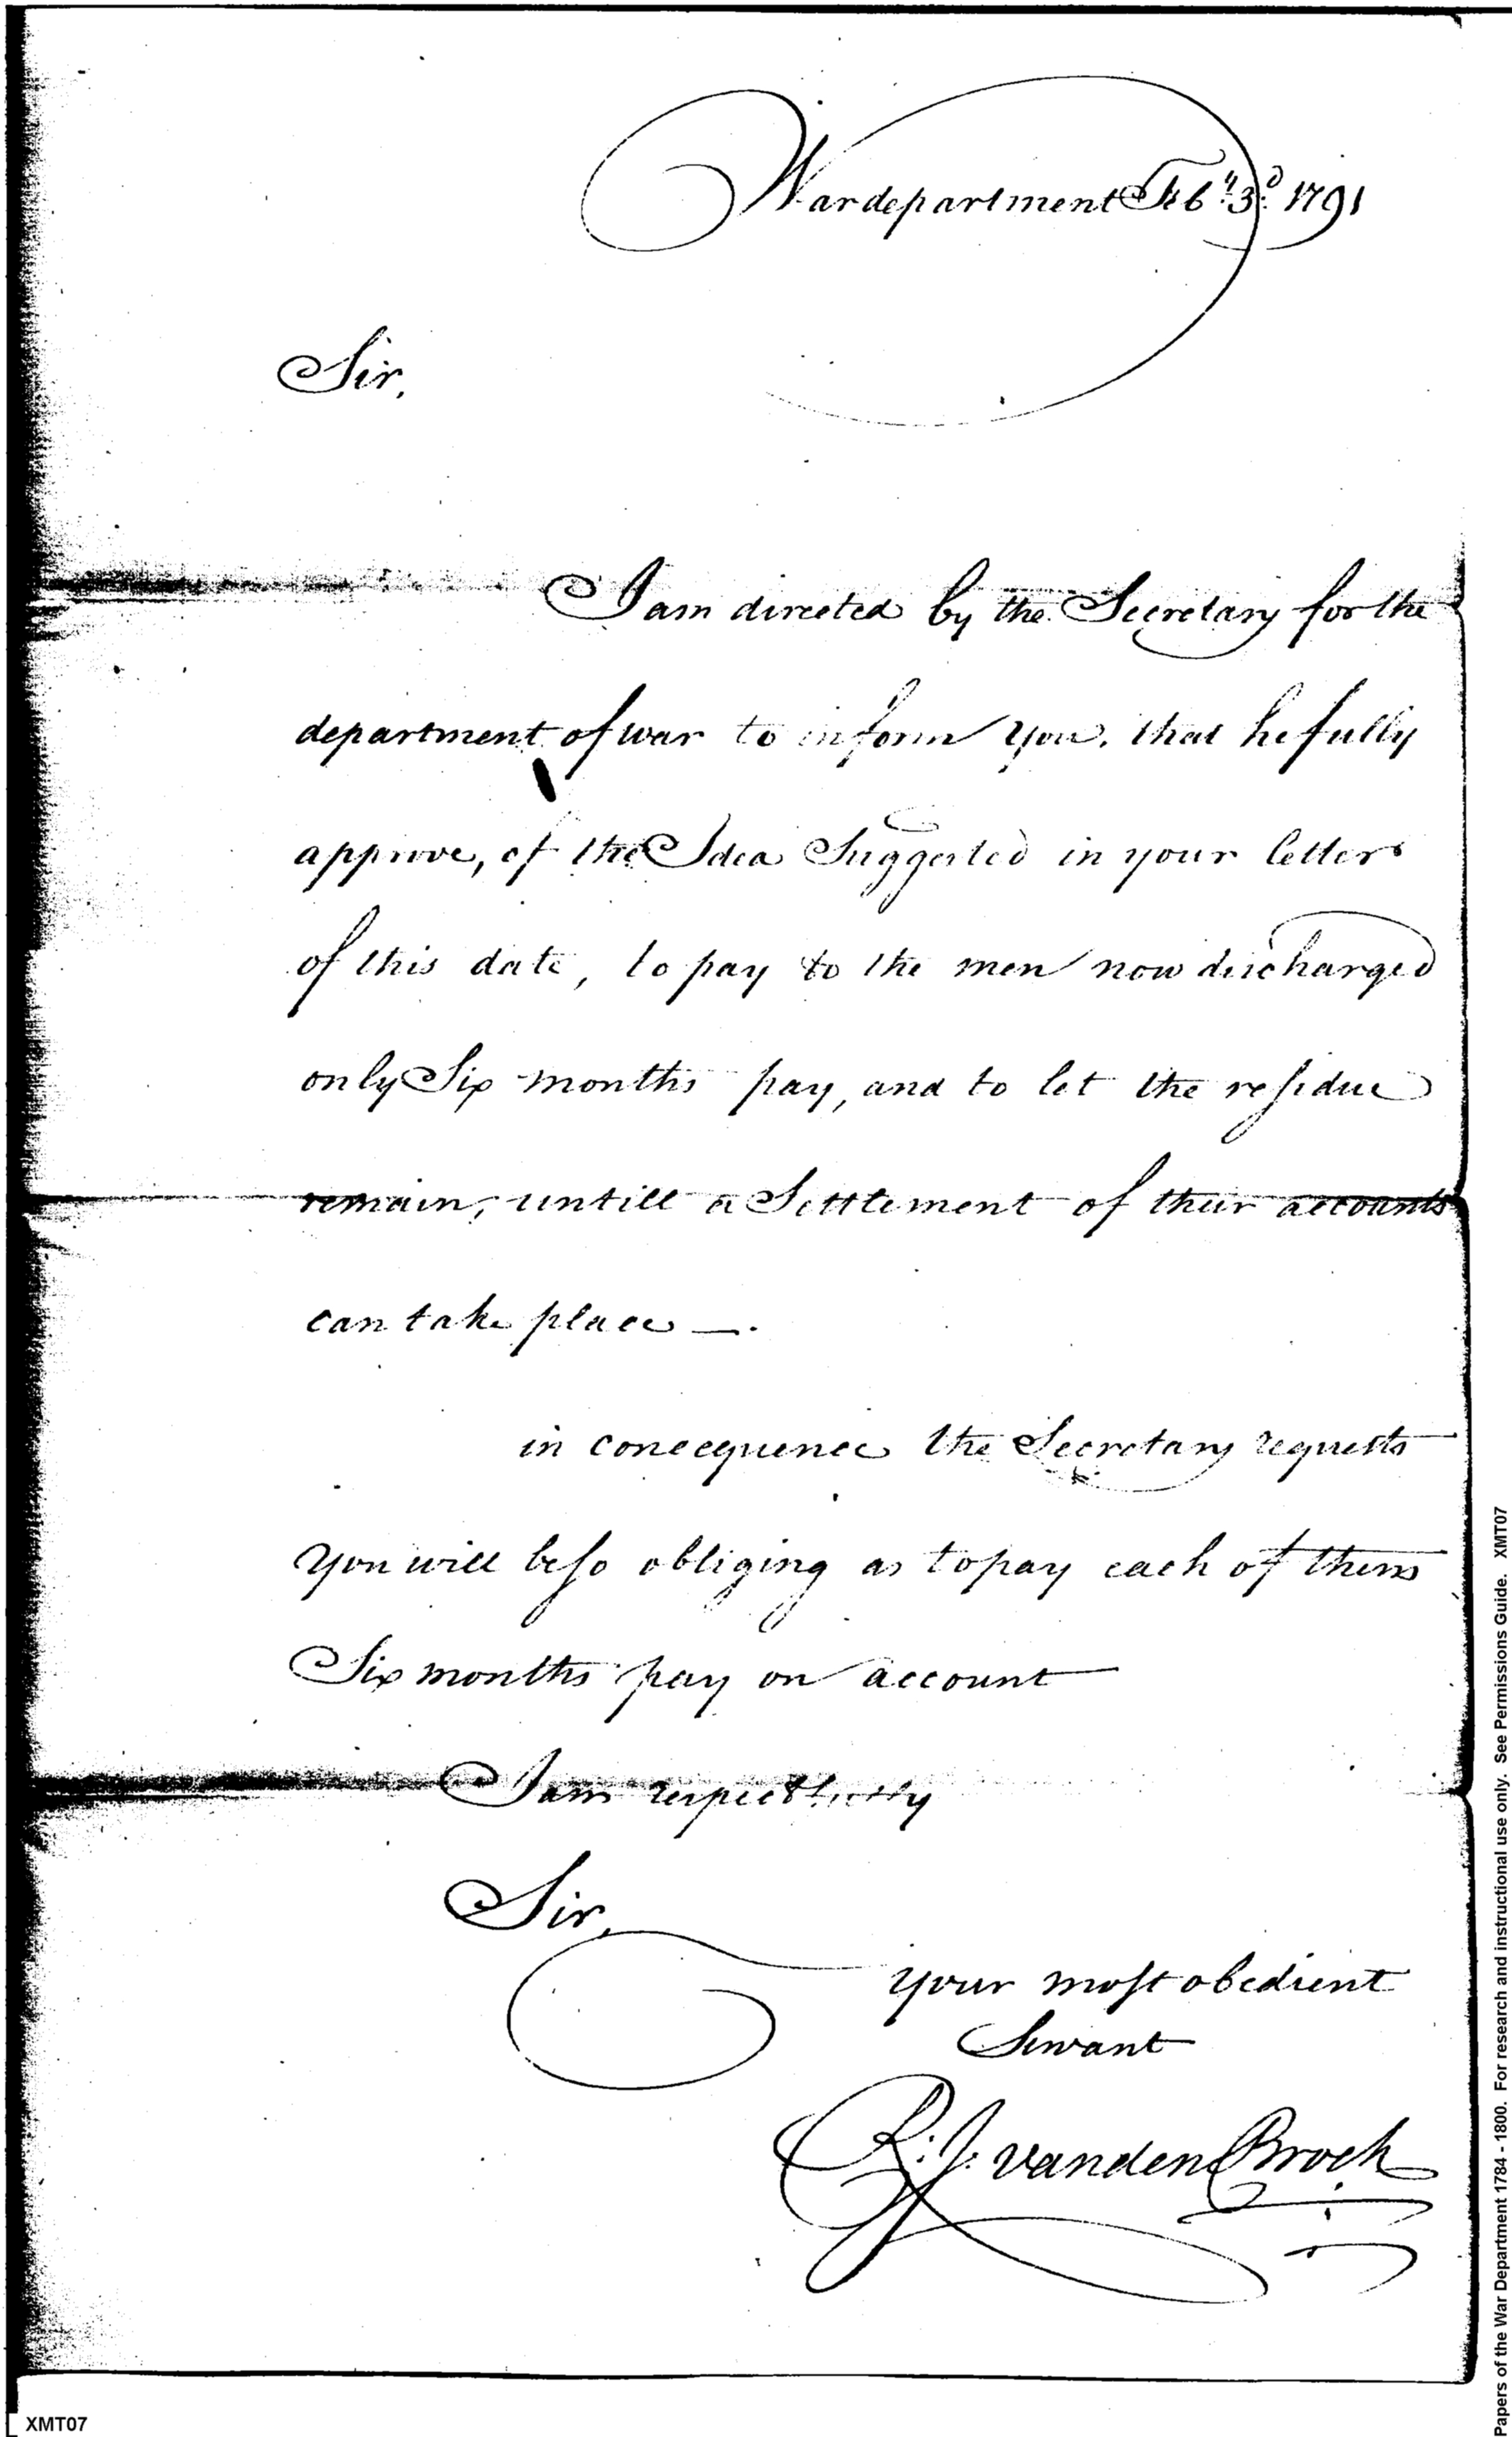 War department Feb.y 3.d 1791
Sir,
I am directed by the Secretary for the
department of war to inform you, that he fully
approve, of the Idea Suggested in your letter
of this date, to pay to the men now discharged
only Six months pay, and to let the residue
remain, untill a Settlement of their accounts
can take place —.
in conecequence the Secretary requests
you will be so obliging as to pay each of them
Six months pay on account
I am respectfully
Sir,
your most obedient
Servant
R. J. vanden Broek
Papers of the War Department 1784 - 1800. For research and instructional use only. See Permissions Guide. XMT07
XMT07